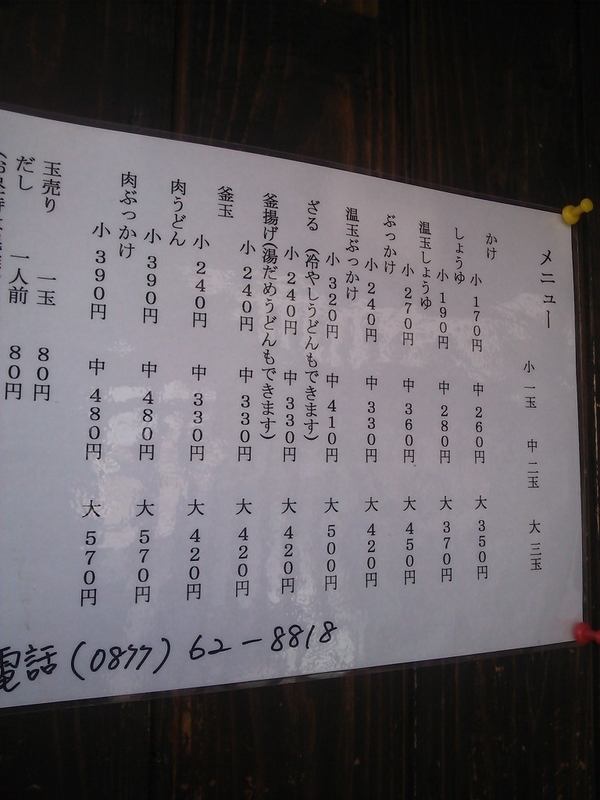 メニュー
小 一玉 中 二玉 大 三玉
かけ
小 170円 中 260円 大 350円
しょうゆ
小 190円 中 280円 大 370円
温玉しょうゆ
小 270円 中 360円 大 450円
ぶっかけ
小 240円 中 330円 大 420円
温玉ぶっかけ
小 320円 中 410円 大 500円
ざる (冷やしうどんもできます)
小 240円 中 330円 大 420円
釜揚げ(湯だめうどんもできます)
小 240円 中 330円 大 420円
釜玉
小 240円 中 330円 大 420円
肉うどん
小 390円 中 480円 大 570円
肉ぶっかけ
小 390円 中 480円 大 570円
玉売り 一玉 80円
だし 一人前 80円
電話(0877) 62-8818